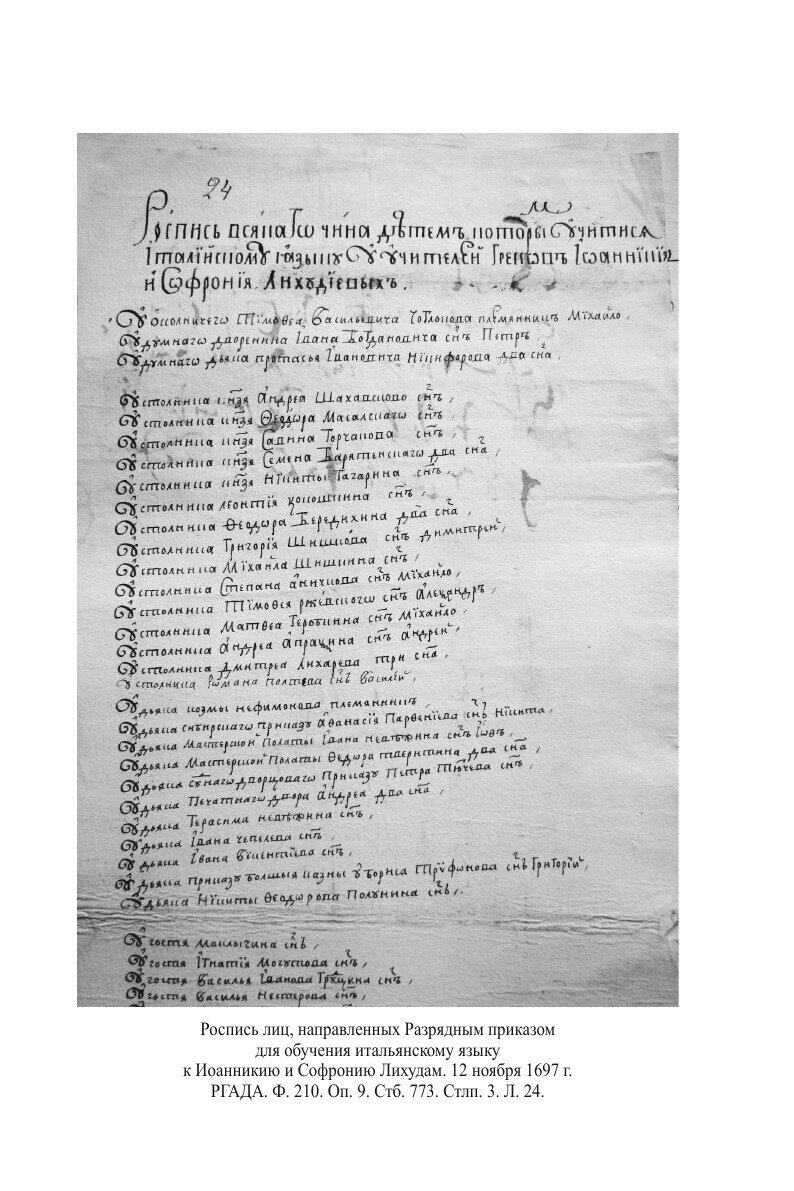 24
Роспись всяка го чина дѣтемъ которы м учитися
Італіискому языку у учителей Грековъ Іѡанникия
и Сѡфрония Лихудіевыхъ.
У околничего Тімоѳеа Васильевича племянникъ Міхайло,
У думнаго дворенина Івана Богдановича снъ Петръ
У думнаго дьяка протасья Івановича Нікифорова два сна,
У столника кнзя Андреа Шаховского снъ,
У столника кнзя Ѳеодора Масалскаго снъ,
У столника кнзя Савина Горчакова снъ,
У столника кнзя Семена Барятенского два сна,
У столника кнзя Нікиты Гагарина снъ,
У столника леонтія кокошкина снъ,
У столника Ѳеодора Бередихина два сна,
У столника Григорія Шишкова снъ димитрей,
У столника Міхайла Шишкина снъ,
У столника Степана аничкова снъ Міхайло,
У столника Тімоѳея ржевского снъ Алеѯандръ,
У столника Матѳеа снъ Міхайло,
У столника Андреа Апраѯина снъ Андрей,
У столника Дмитреа Лихарева три сна
У столника Романа полтева снъ Василей,
У дьяка козмы неѳимонова племянникъ,
У дьяка сибирского приказу Аѳанасія Парѳеніева снъ Нікита,
У дьяка Мастерской Полаты Івана невѣжина снъ
У дьяка Мастерской Полаты Ѳедора тверитина два сна,
У дьяка дворцоваго Приказу Петра Тютчева снъ,
У дьяка Печатнаго двора Андреа два сна,
У дьяка Герасима невѣжина снъ,
У дьяка Івана чепелева снъ,
У дьяка Івана снъ,
У дьяка приказу болшыя казны у бориса Труѳонова снъ Григорій,
У дьяка Нікиты Ѳеодорова Полунина снъ,
У гостя снъ,
У гостя Ігнатія Могутова снъ,
У гостя Василья Іванова Грудцына снъ,
У гостя Василья Нестерова снъ,
Роспись лиц, направленных Разрядным приказом
для обучения итальянскому языку
к Иоанникию и Софронию Лихудам. 12 ноября 1697 г.
РГАДА. Ф. 210. Оп. 9. Стб. 773. Стлп. 3. Л. 24.